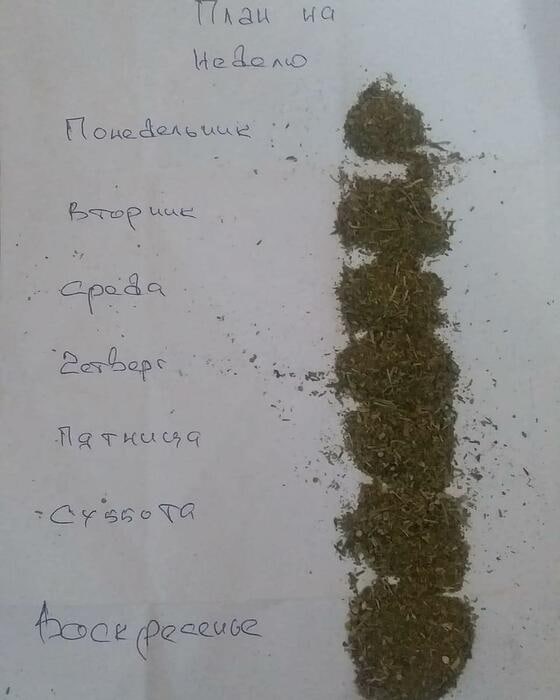 План на
неделю
Понедельник
Вторник
Среда
Четверг
Пятница
Суббота
Воскресенье